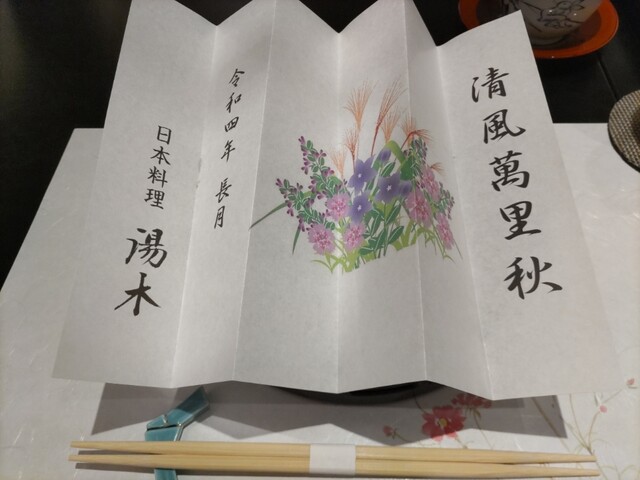 清風萬里秋
令和四年 長月
日本料理 湯木